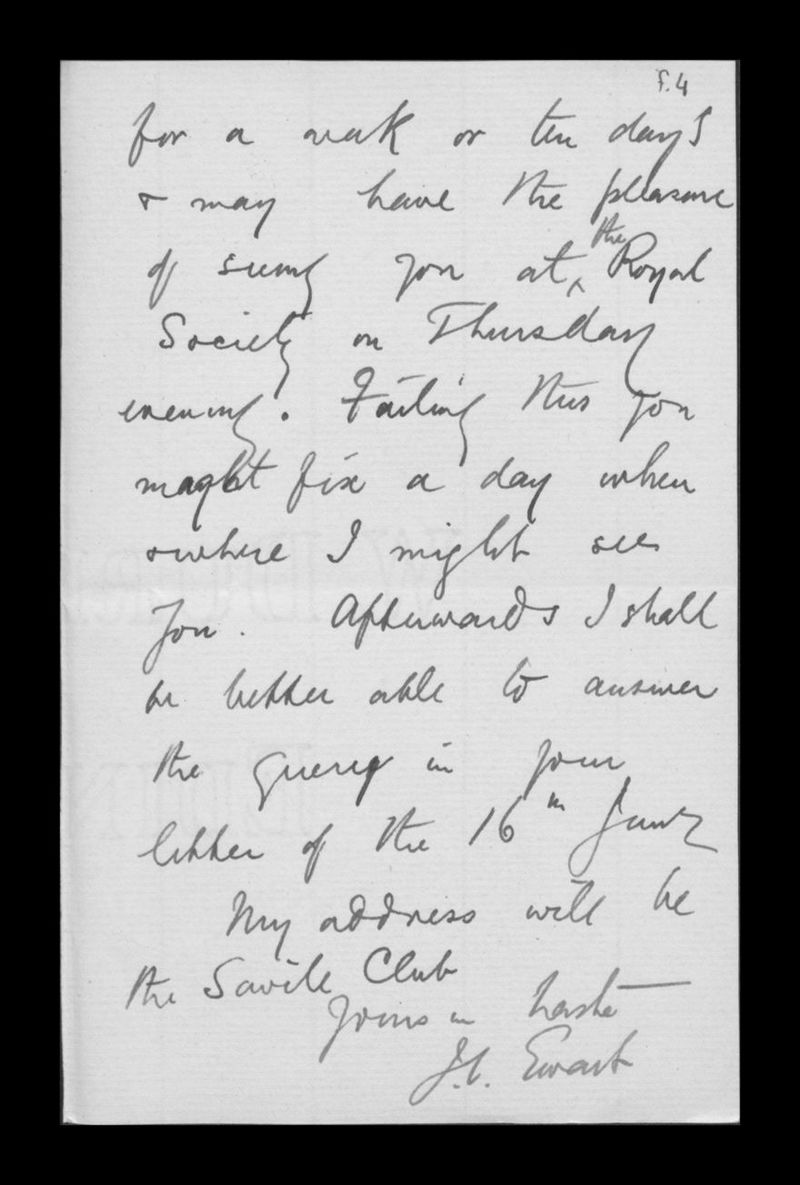 f.4
for a week or ten days
& may have the pleasure
of seeing you at ^the Royal
Society on Thursday
evening. Failing this you
might fix a day when
& where I might see
you. Afterwards I shall
be better able to answer
the query in your
letter of the 16th June
My address will be
the Savile Club
Yours in haste
J.C. Ewart